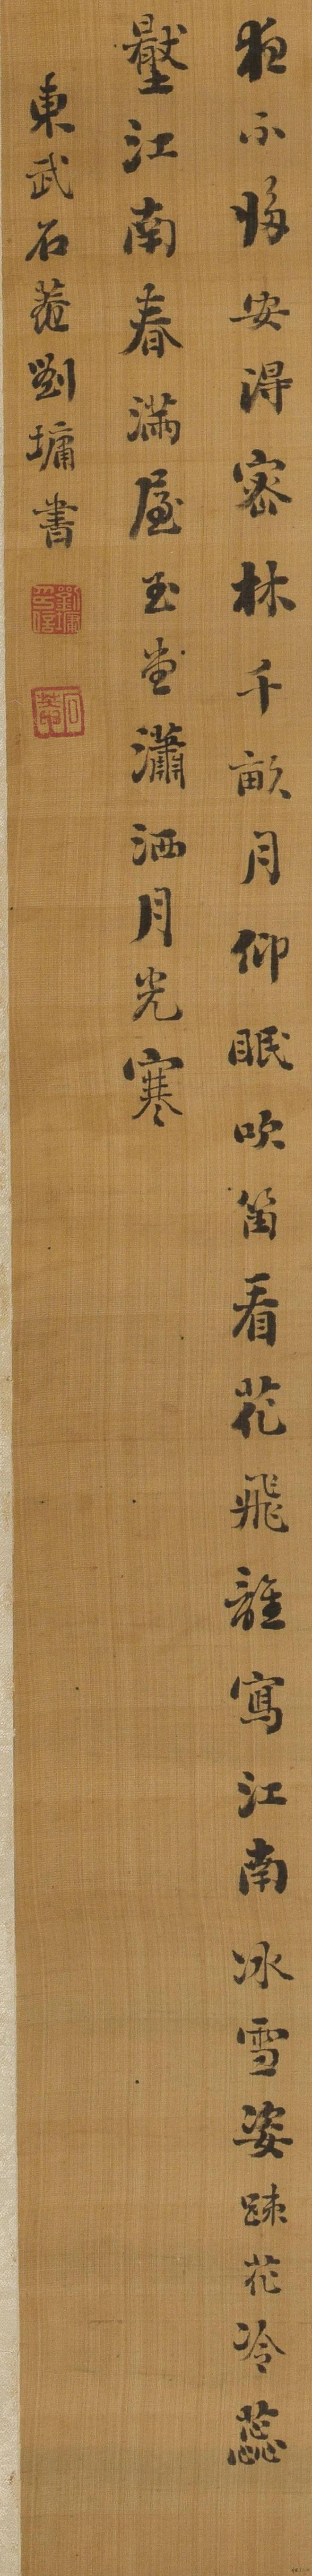 夜不歸安得密林千畝月仰眠吹笛看花飛誰寫江南冰雪姿踈花冷蕊
壓江南春滿屋玉堂瀟洒月光寒
東武石菴劉墉書
劉墉印信
石菴